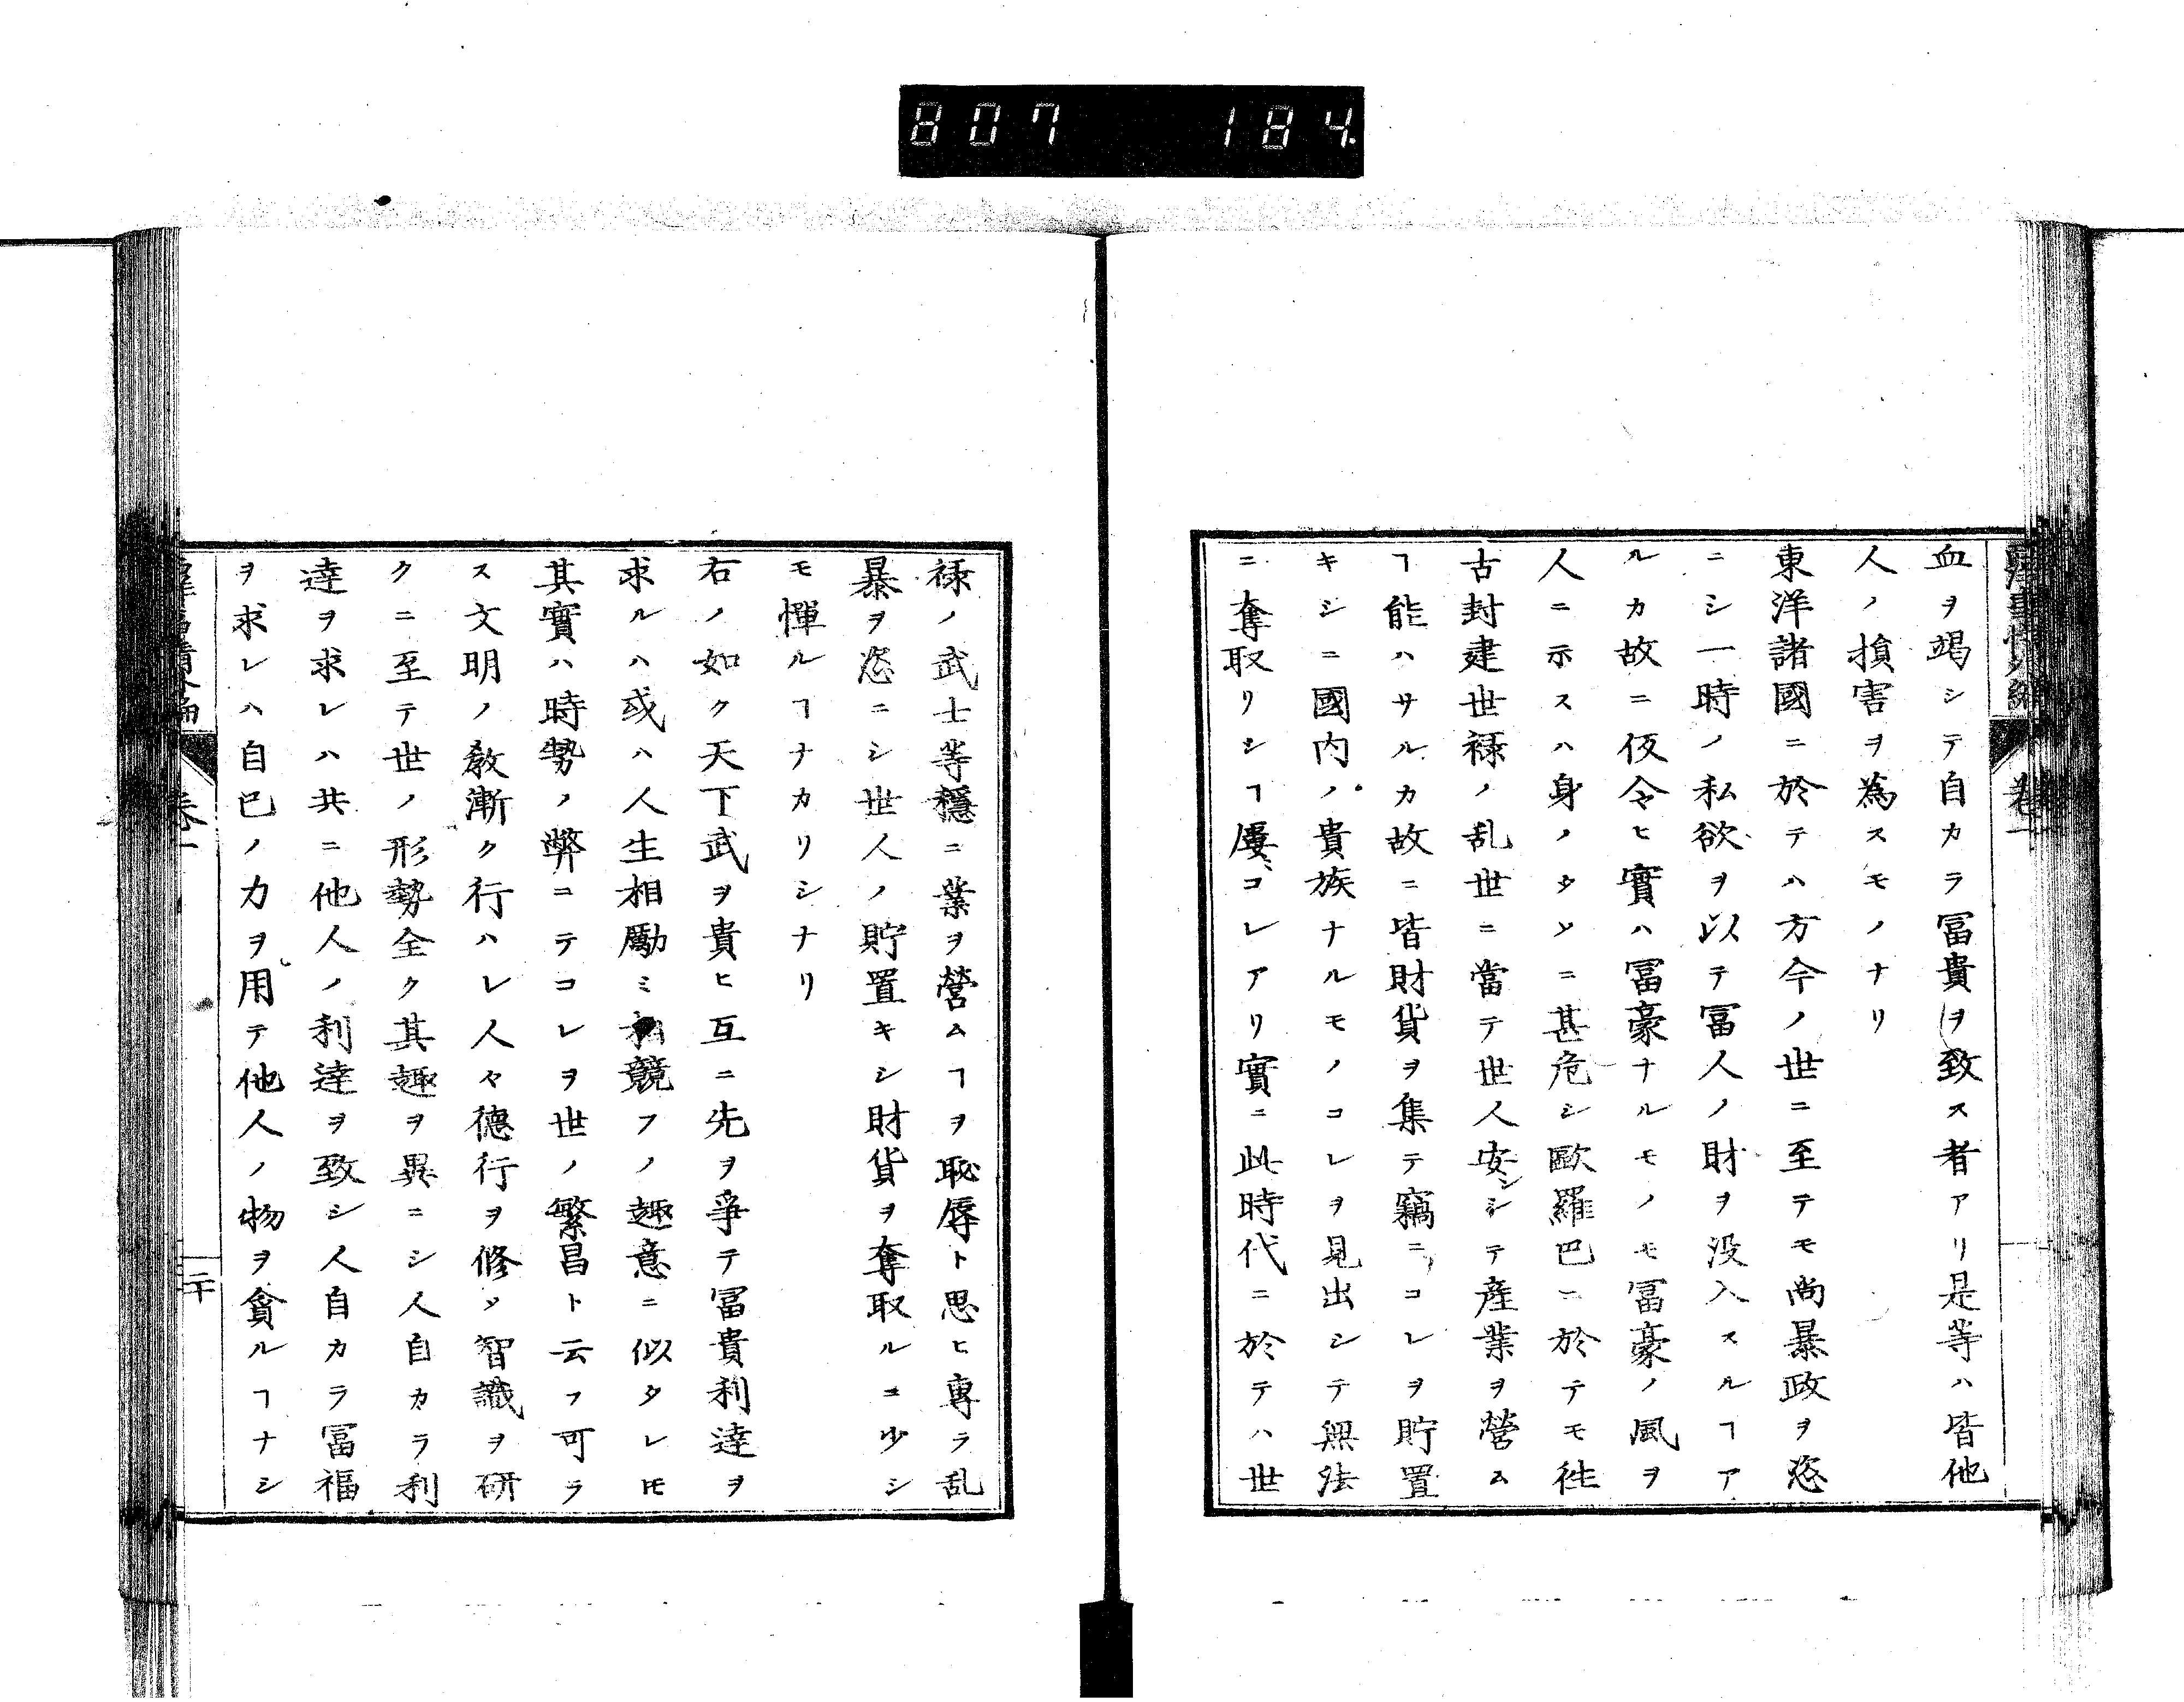 807 184
血ヲ竭シテ自カラ冨貴ヲ致ス者アリ是等ハ皆他
人ノ損害ヲ為スモノナリ
東洋諸國ニ於テハ方今ノ世ニ至テモ尚暴政ヲ恣
ニシ一時ノ私欲ヲ以テ冨人ノ財ヲ没入スルヿア
ルカ故ニ仮令ヒ實ハ冨豪ナルモノモ冨豪ノ風ヲ
人ニ示スハ身ノタメニ甚危シ歐羅巴ニ於テモ徃
古封建世禄ノ乱世ニ當テ世人安シシテ産業ヲ營ム
ヿ能ハサルカ故ニ皆財貨ヲ集テ竊ニコレヲ貯置
キシニ國内ノ貴族ナルモノコレヲ見出シテ無法
ニ奪取リシヿ屢〻コレアリ實ニ此時代ニ於テハ世
禄ノ武士等穏ニ業ヲ營ムヿヲ恥辱ト思ヒ專ラ乱
暴ヲ恣ニシ世人ノ貯置キシ財貨ヲ奪取ルニ少シ
モ憚ルヿナカリシナリ
右ノ如ク天下武ヲ貴ヒ互ニ先ヲ爭テ冨貴利達ヲ
求ルハ或ハ人生相勵ミ相競フノ趣意ニ似タレ𪜈
其實ハ時勢ノ弊ニテコレヲ世ノ繁昌ト云フ可ラ
ス文明ノ敎漸ク行ハレ人々德行ヲ修メ智識ヲ研
クニ至テ世ノ形勢全ク其趣ヲ異ニシ人自カラ利
達ヲ求レハ共ニ他人ノ利達ヲ致シ人自カラ冨福
ヲ求レハ自己ノ力ヲ用テ他人ノ物ヲ貪ルヿナシ
卷一
二十